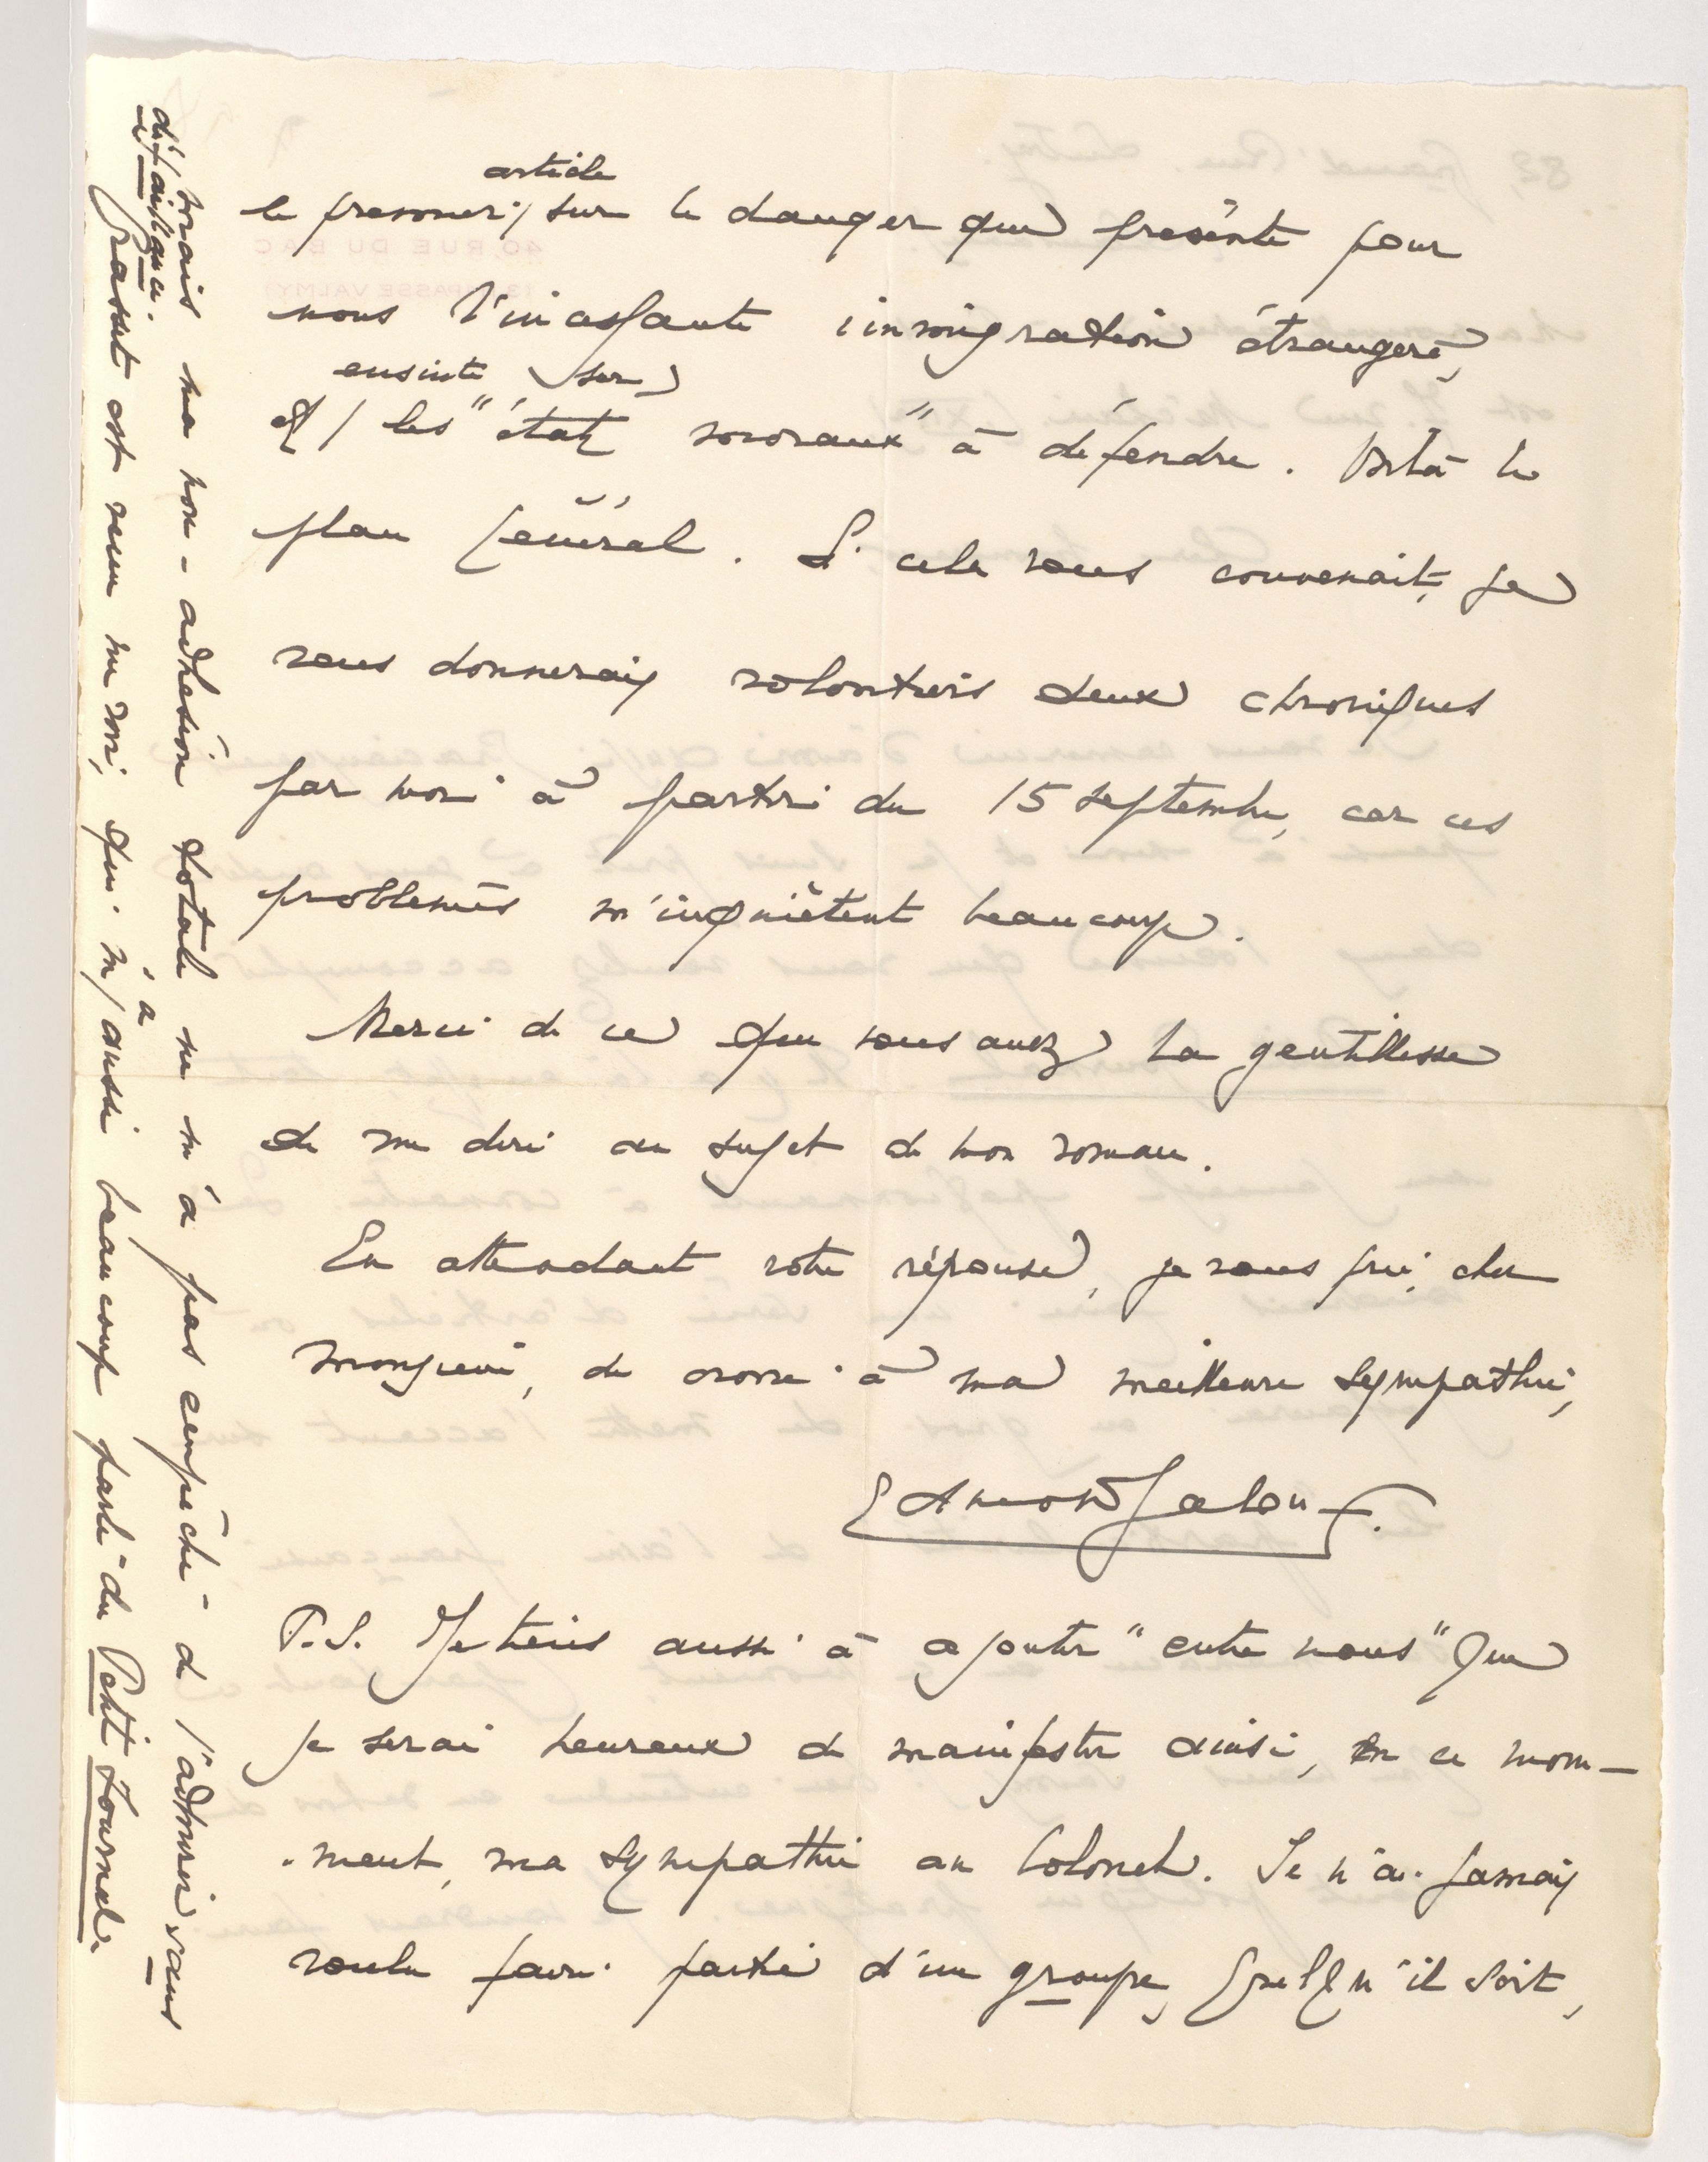 article
le premier / sur le danger que présente pour
nous l'incessante immigration étrangère,
ensuite sur
et / les "états moraux" à défendre. Voilà le
plan général. Si cela vous convenait, je
vous donnerais volontiers deux chroniques
par mois à partir du 15 septembre, car ces
problèmes m'inquiètent beaucoup.
Merci de ce que vous avez la gentillesse
de me dire au sujet de mon roman.
En attendant votre réponse, je vous prie, cher
monsieur, de croire à ma meilleure sympathie,
Edmond Jaloux.
P.S. Je tiens aussi à ajouter "entre nous" que
je serai heureux de manifester ainsi, en ce mom-
-ment, ma sympathie au Colonel. Je n'ai jamais
voulu faire partie d'un groupe, quel qu'il soit,
mais ma non-adhésion totale ne m'a pas empêché de l'admirer sans
défaillance.
Massis est venu me voir, qui m'a aussi beaucoup parlé du Petit Journal.